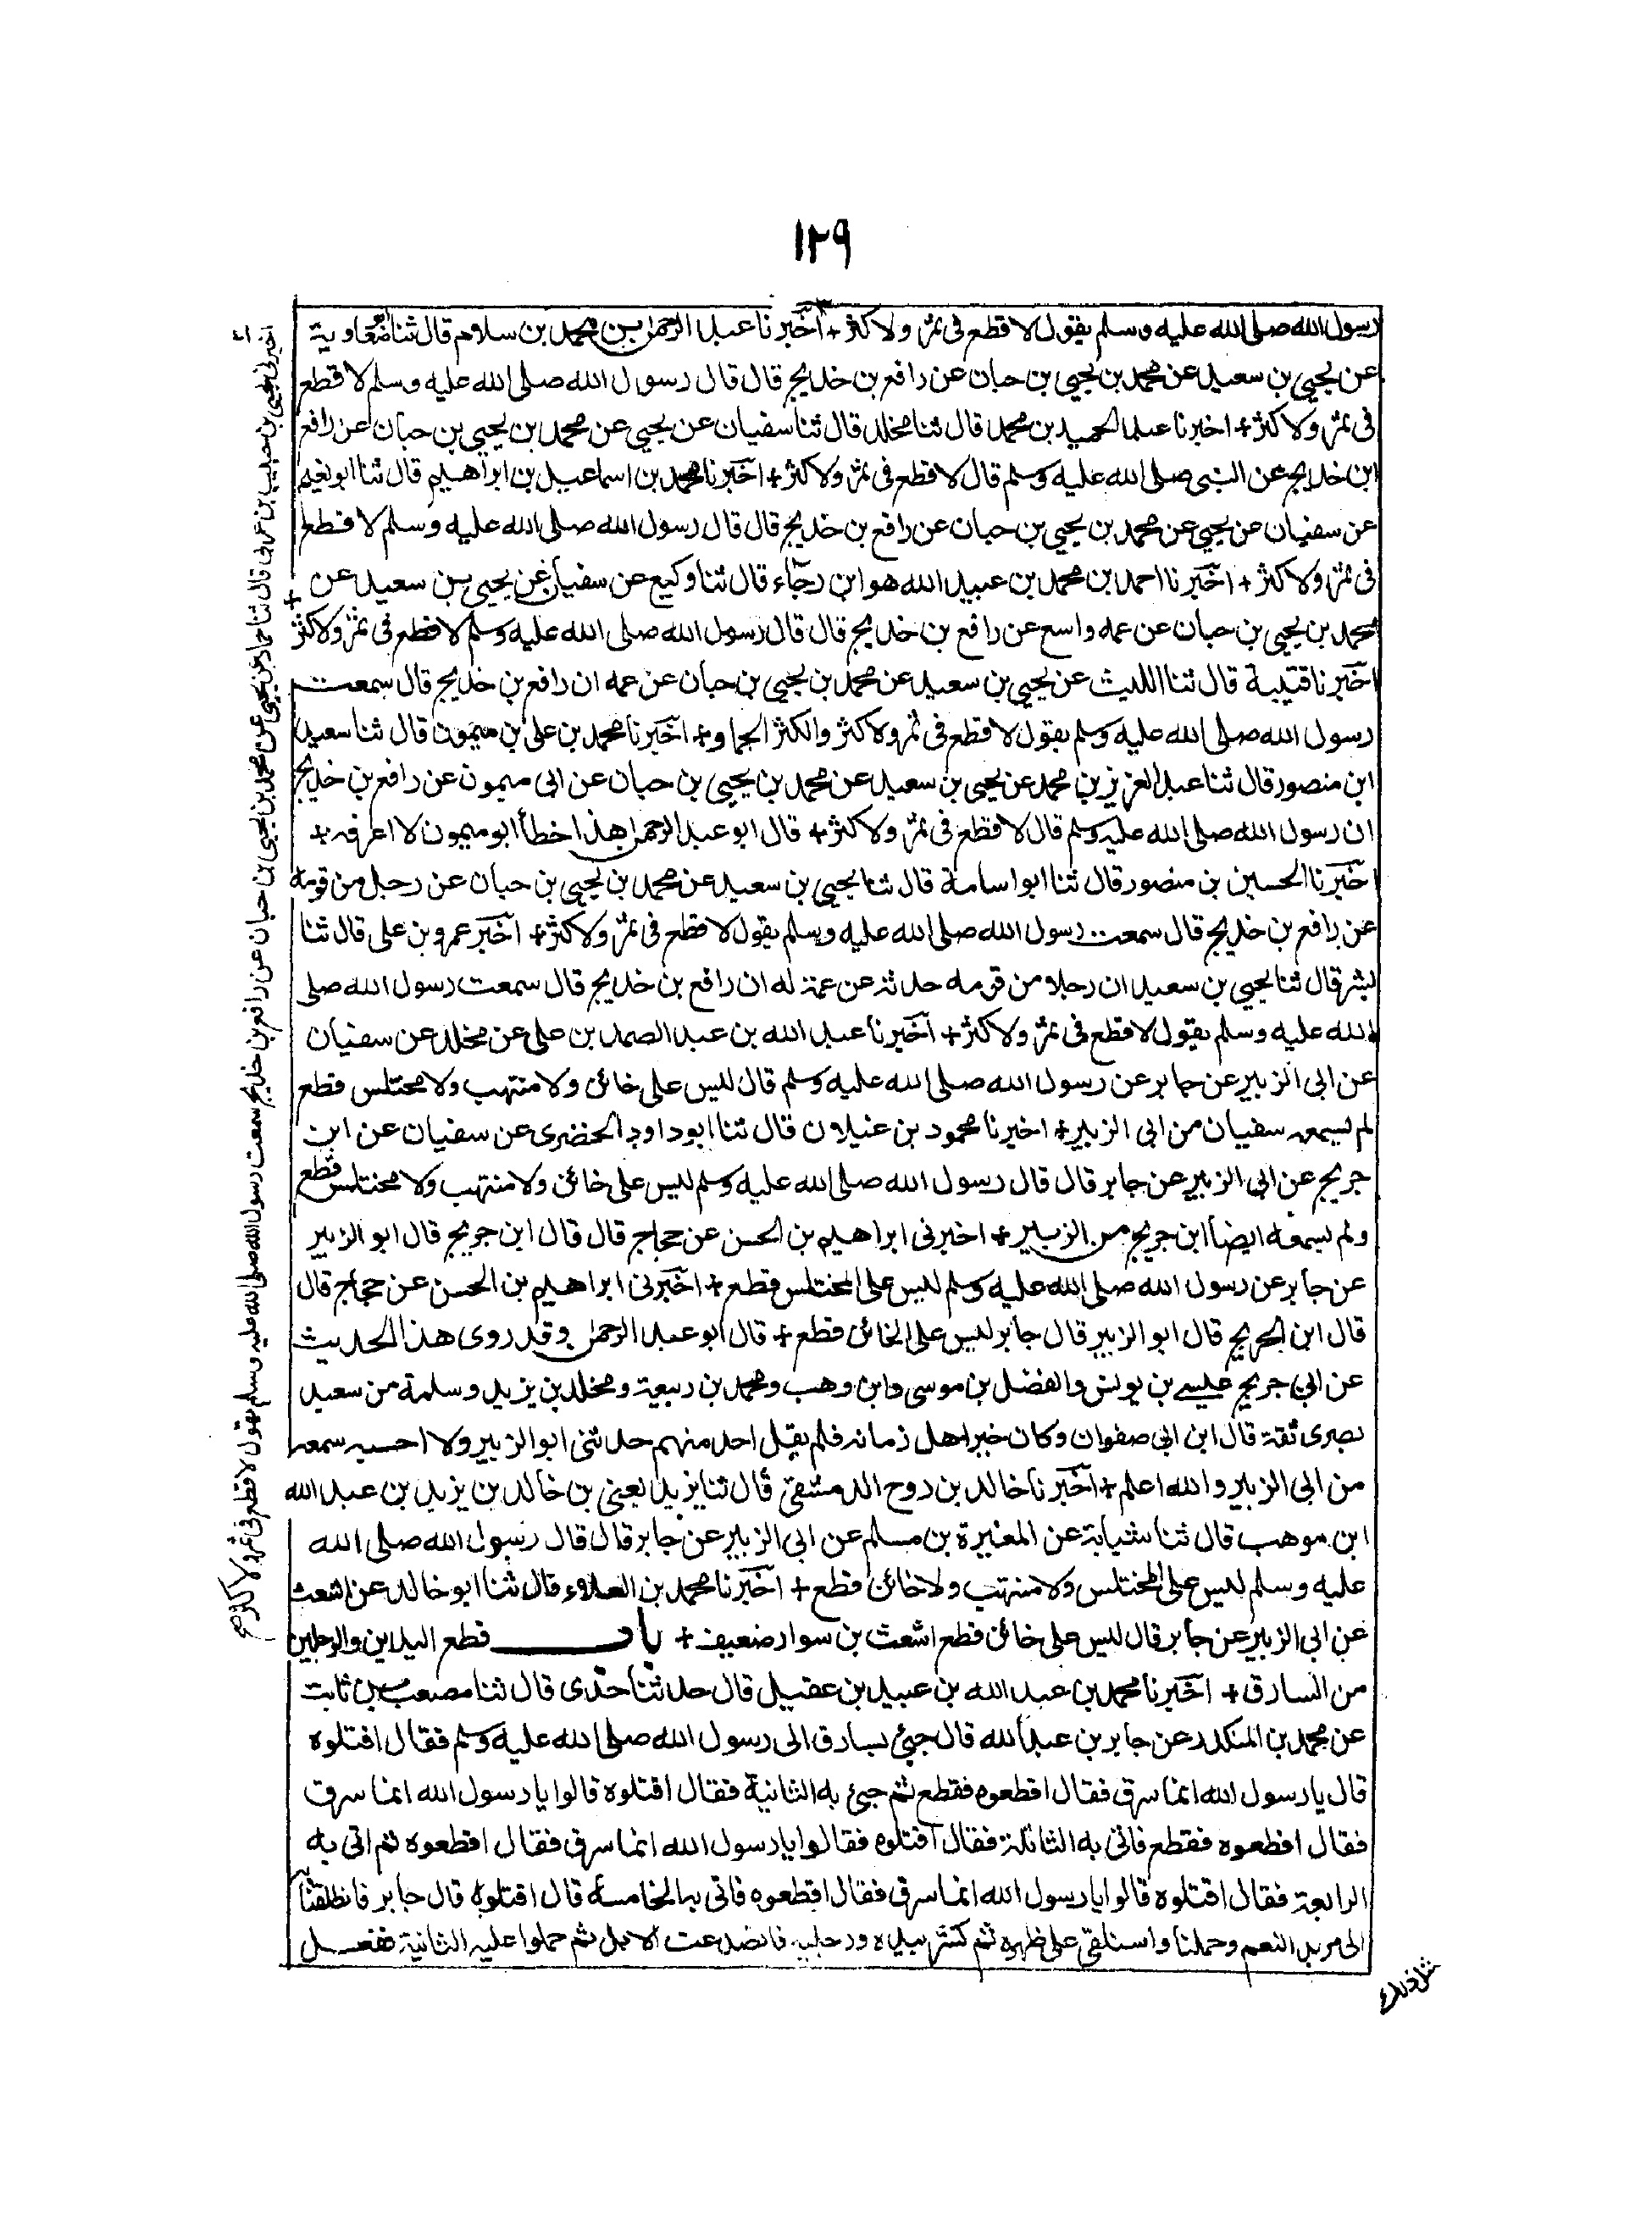 ١٢٩
رسول الله صلى الله عليه وسلم يقول لا قطع فى ثمر ولا كثر + اخبرنا عبد الرحمن بن محمد بن سلام قال ثنا ابو معاوية
عن يحيى بن سعيد عن محمد بن يحيى بن حبان عن رافع بن خديج قال قال رسول الله صلى الله عليه وسلم لا قطع
فى ثمر ولا كثر + اخبرنا عبد الحميد بن محمد قال ثنا مخلد قال ثنا سفيان عن يحيى عن محمد بن يحيى بن حبان عن رافع
ابن خديج عن النبى صلى الله عليه وسلم قال لا قطع فى ثمر ولا كثر + اخبرنا محمد بن اسماعيل بن ابراهيم قال ثنا ابو نعيم
عن سفيان عن يحيى عن محمد بن يحيى بن حبان عن رافع بن خديج قال قال رسول الله صلى الله عليه وسلم لا قطع
فى ثمر ولا كثر + اخبرنا احمد بن محمد بن عبيد الله هو ابن رجاء قال ثنا وكيع عن سفيان عن يحيى بن سعيد عن
محمد بن يحيى بن حبان عن عمه واسع عن رافع بن خديج قال قال رسول الله صلى الله عليه وسلم لا قطع فى ثمر ولا كثر +
اخبرنا قتيبة قال ثنا الليث عن يحيى بن سعيد عن محمد بن يحيى بن حبان عن عمه ان رافع بن خديج قال سمعت
رسول الله صلى الله عليه وسلم يقول لا قطع فى ثمر ولا كثر والكثر الجمار + اخبرنا محمد بن على بن ميمون قال ثنا سعيد
ابن منصور قال ثنا عبد العزيز بن محمد عن يحيى بن سعيد عن محمد بن يحيى بن حبان عن ابى ميمون عن رافع بن خديج
ان رسول الله صلى الله عليه وسلم قال لا قطع فى ثمر ولا كثر + قال ابو عبد الرحمن هذا خطأ ابو ميمون لا اعرفه +
اخبرنا الحسين بن منصور قال ثنا ابو اسامة قال ثنا يحيى بن سعيد عن محمد بن يحيى بن حبان عن رجل من قومه
عن رافع بن خديج قال سمعت رسول الله صلى الله عليه وسلم يقول لا قطع فى ثمر ولا كثر + اخبر عمرو بن على قال ثنا
بشر قال ثنا يحيى بن سعيد ان رجلا من قومه حدثه عن عمة له ان رافع بن خديج قال سمعت رسول الله صلى
الله عليه وسلم يقول لا قطع فى ثمر ولا كثر + اخبرنا عبد الله بن عبد الصمد بن على عن مخلد عن سفيان
عن ابى الزبير عن جابر عن رسول الله صلى الله عليه وسلم قال ليس على خائن ولا منتهب ولا مختلس قطع
لم يسمعه سفيان من ابى الزبير + اخبرنا محمود بن غيلان قال ثنا ابو داود الحضرى عن سفيان عن ابن
جريج عن ابى الزبير عن جابر قال قال رسول الله صلى الله عليه وسلم ليس على خائن ولا منتهب ولا مختلس قطع
ولم يسمعه ايضا ابن جريج من الزبير + اخبرنى ابراهيم بن الحسن عن حجاج قال قال ابن جريج قال ابو الزبير
عن جابر عن رسول الله صلى الله عليه وسلم ليس على المختلس قطع + اخبرنى ابراهيم بن الحسن عن حجاج قال
قال ابن الجريج قال ابو الزبير قال جابر ليس على الخائن قطع + قال ابو عبد الرحمن وقد روى هذا الحديث
عن ابن جريج عيسى بن يونس والفضل بن موسى وابن وهب ومحمد بن ربيعة ومخلد بن يزيد وسلمة من سعيد
بصرى ثقة قال ابن ابى صفوان وكان خير اهل زمانه فلم يقل احد منهم حدثنى ابو الزبير ولا احسبه سمعه
من ابى الزبير والله اعلم + اخبرنا خالد بن روح الدمشقى قال ثنا يزيد يعنى بن خالد بن يزيد بن عبد الله
ابن موهب قال ثنا شبابة عن المغيرة بن مسلم عن ابى الزبير عن جابر قال قال رسول الله صلى الله
عليه وسلم ليس على المختلس ولا منتهب ولا خائن قطع + اخبرنا محمد بن العلاء قال ثنا ابو خالد عن اشعث
عن ابى الزبير عن جابر قال ليس على خائن قطع اشعث بن سوار ضعيف + باب قطع اليدين والرجلين
من السارق + اخبرنا محمد بن عبد الله بن عبيد بن عقيل قال حدثنا جدى قال ثنا مصعب بن ثابت
عن محمد بن المنكدر عن جابر بن عبد الله قال جيئ بسارق الى رسول الله صلى الله عليه وسلم فقال اقتلوه
قال يا رسول الله انما سرق فقال اقطعوه فقطع ثم جيئ به الثانية فقال اقتلوه قالوا يا رسول الله انما سرق
فقال اقطعوه فقطع فاتى به الثالثة فقال اقتلوه فقالوا يا رسول الله انما سرق فقال اقطعوه ثم اتى به
الرابعة فقال اقتلوه قالوا يا رسول الله انما سرق فقال اقطعوه فاتى به الخامسة قال اقتلوه قال جابر فانطلقنا
الى مربد النعم وحملنا واستلقى على ظهره ثم كشر بيديه ورجليه فانصدعت الابل ثم حملوا عليه الثانية ففعل
مثل ذلك
اخبرنى يحيى بن حبيب بن عربى قال ثنا حماد عن يحيى عن محمد بن يحيى بن حبان عن رافع بن خديج سمعت رسول الله صلى الله عليه وسلم يقول لا قطع فى ثمر ولا كثر